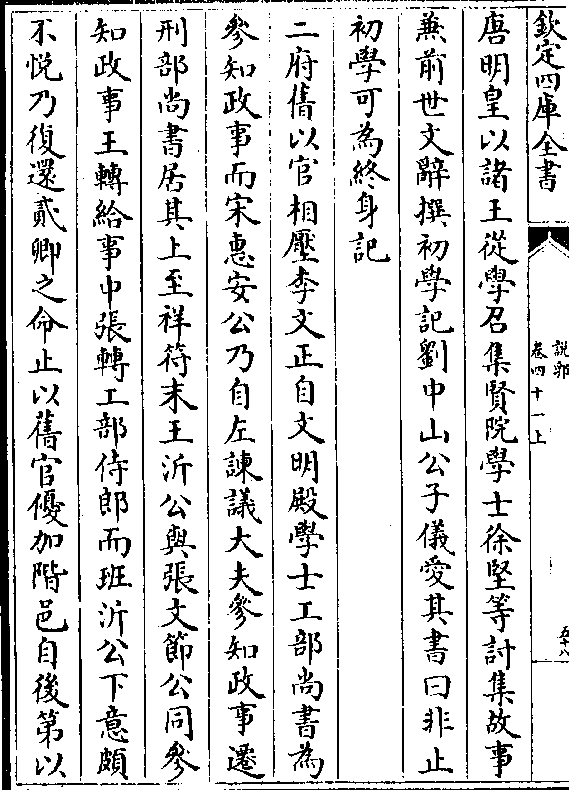 欽定四庫全書
說郛
卷四十一上
五十八
唐明皇以諸王從學召集賢院學士徐堅等討集故事
兼前世文辭撰初學記劉中山公子儀愛其書曰非止
初學可為終身記
二府舊以官相壓李文正自文明殿學士工部尚書為
參知政事而宋惠安公乃自左諫議大夫參知政事遷
刑部尚書居其上至祥符末王沂公與張文節公同參
知政事王轉給事中張轉工部侍郎而班沂公下意頗
不悅乃復還貳卿之命止以舊官優加階邑自後第以